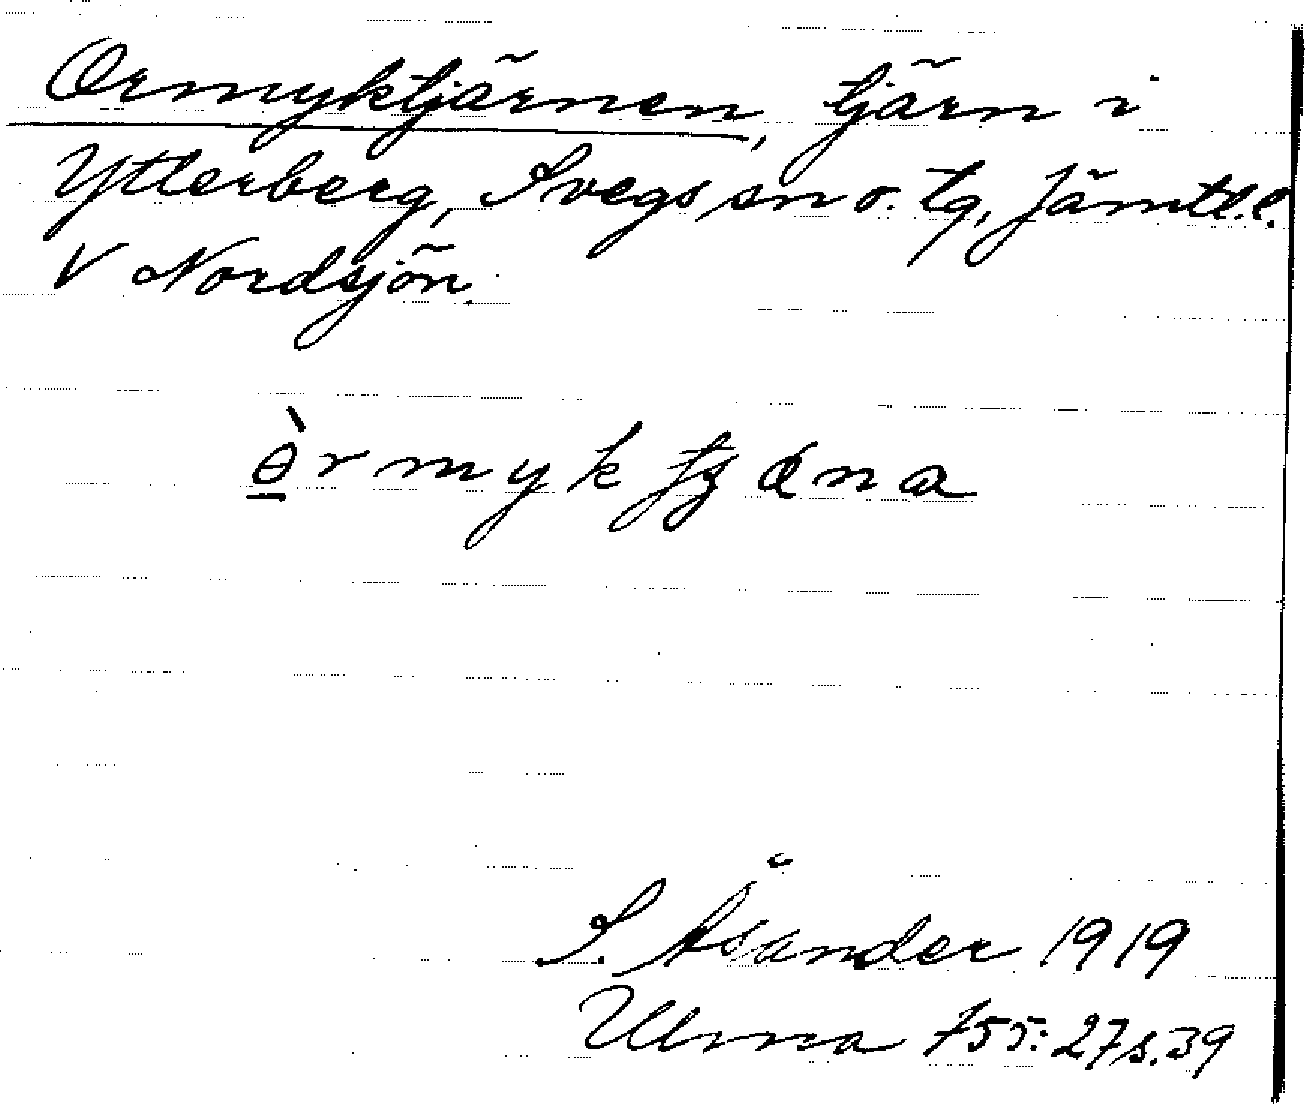 Ormyktjärnen, tjärn i
Ytterberg, Svegs sn o. tg, Jämtl.l.
V Nordsjön.
ò̱rmyktjäna
S. Åsander 1919
Ulma 755:27 s.39